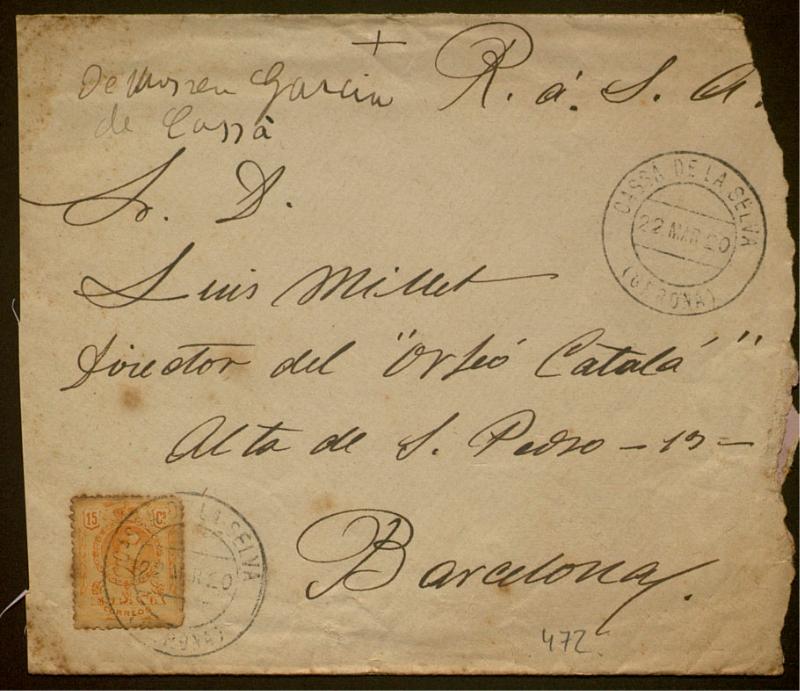 +
De Mossen Garcia
de Cassà
R. á. S. A.
Sr. D.
CASSÁ DE LA SELVA
22 MAR 20
(GERONA)
Luis Millet
Director del "Orfeó Catalá"
Alta de S. Pedro - 13 -
Barcelona
15 Cs
CORREOS
LA SELVA
R 20
472